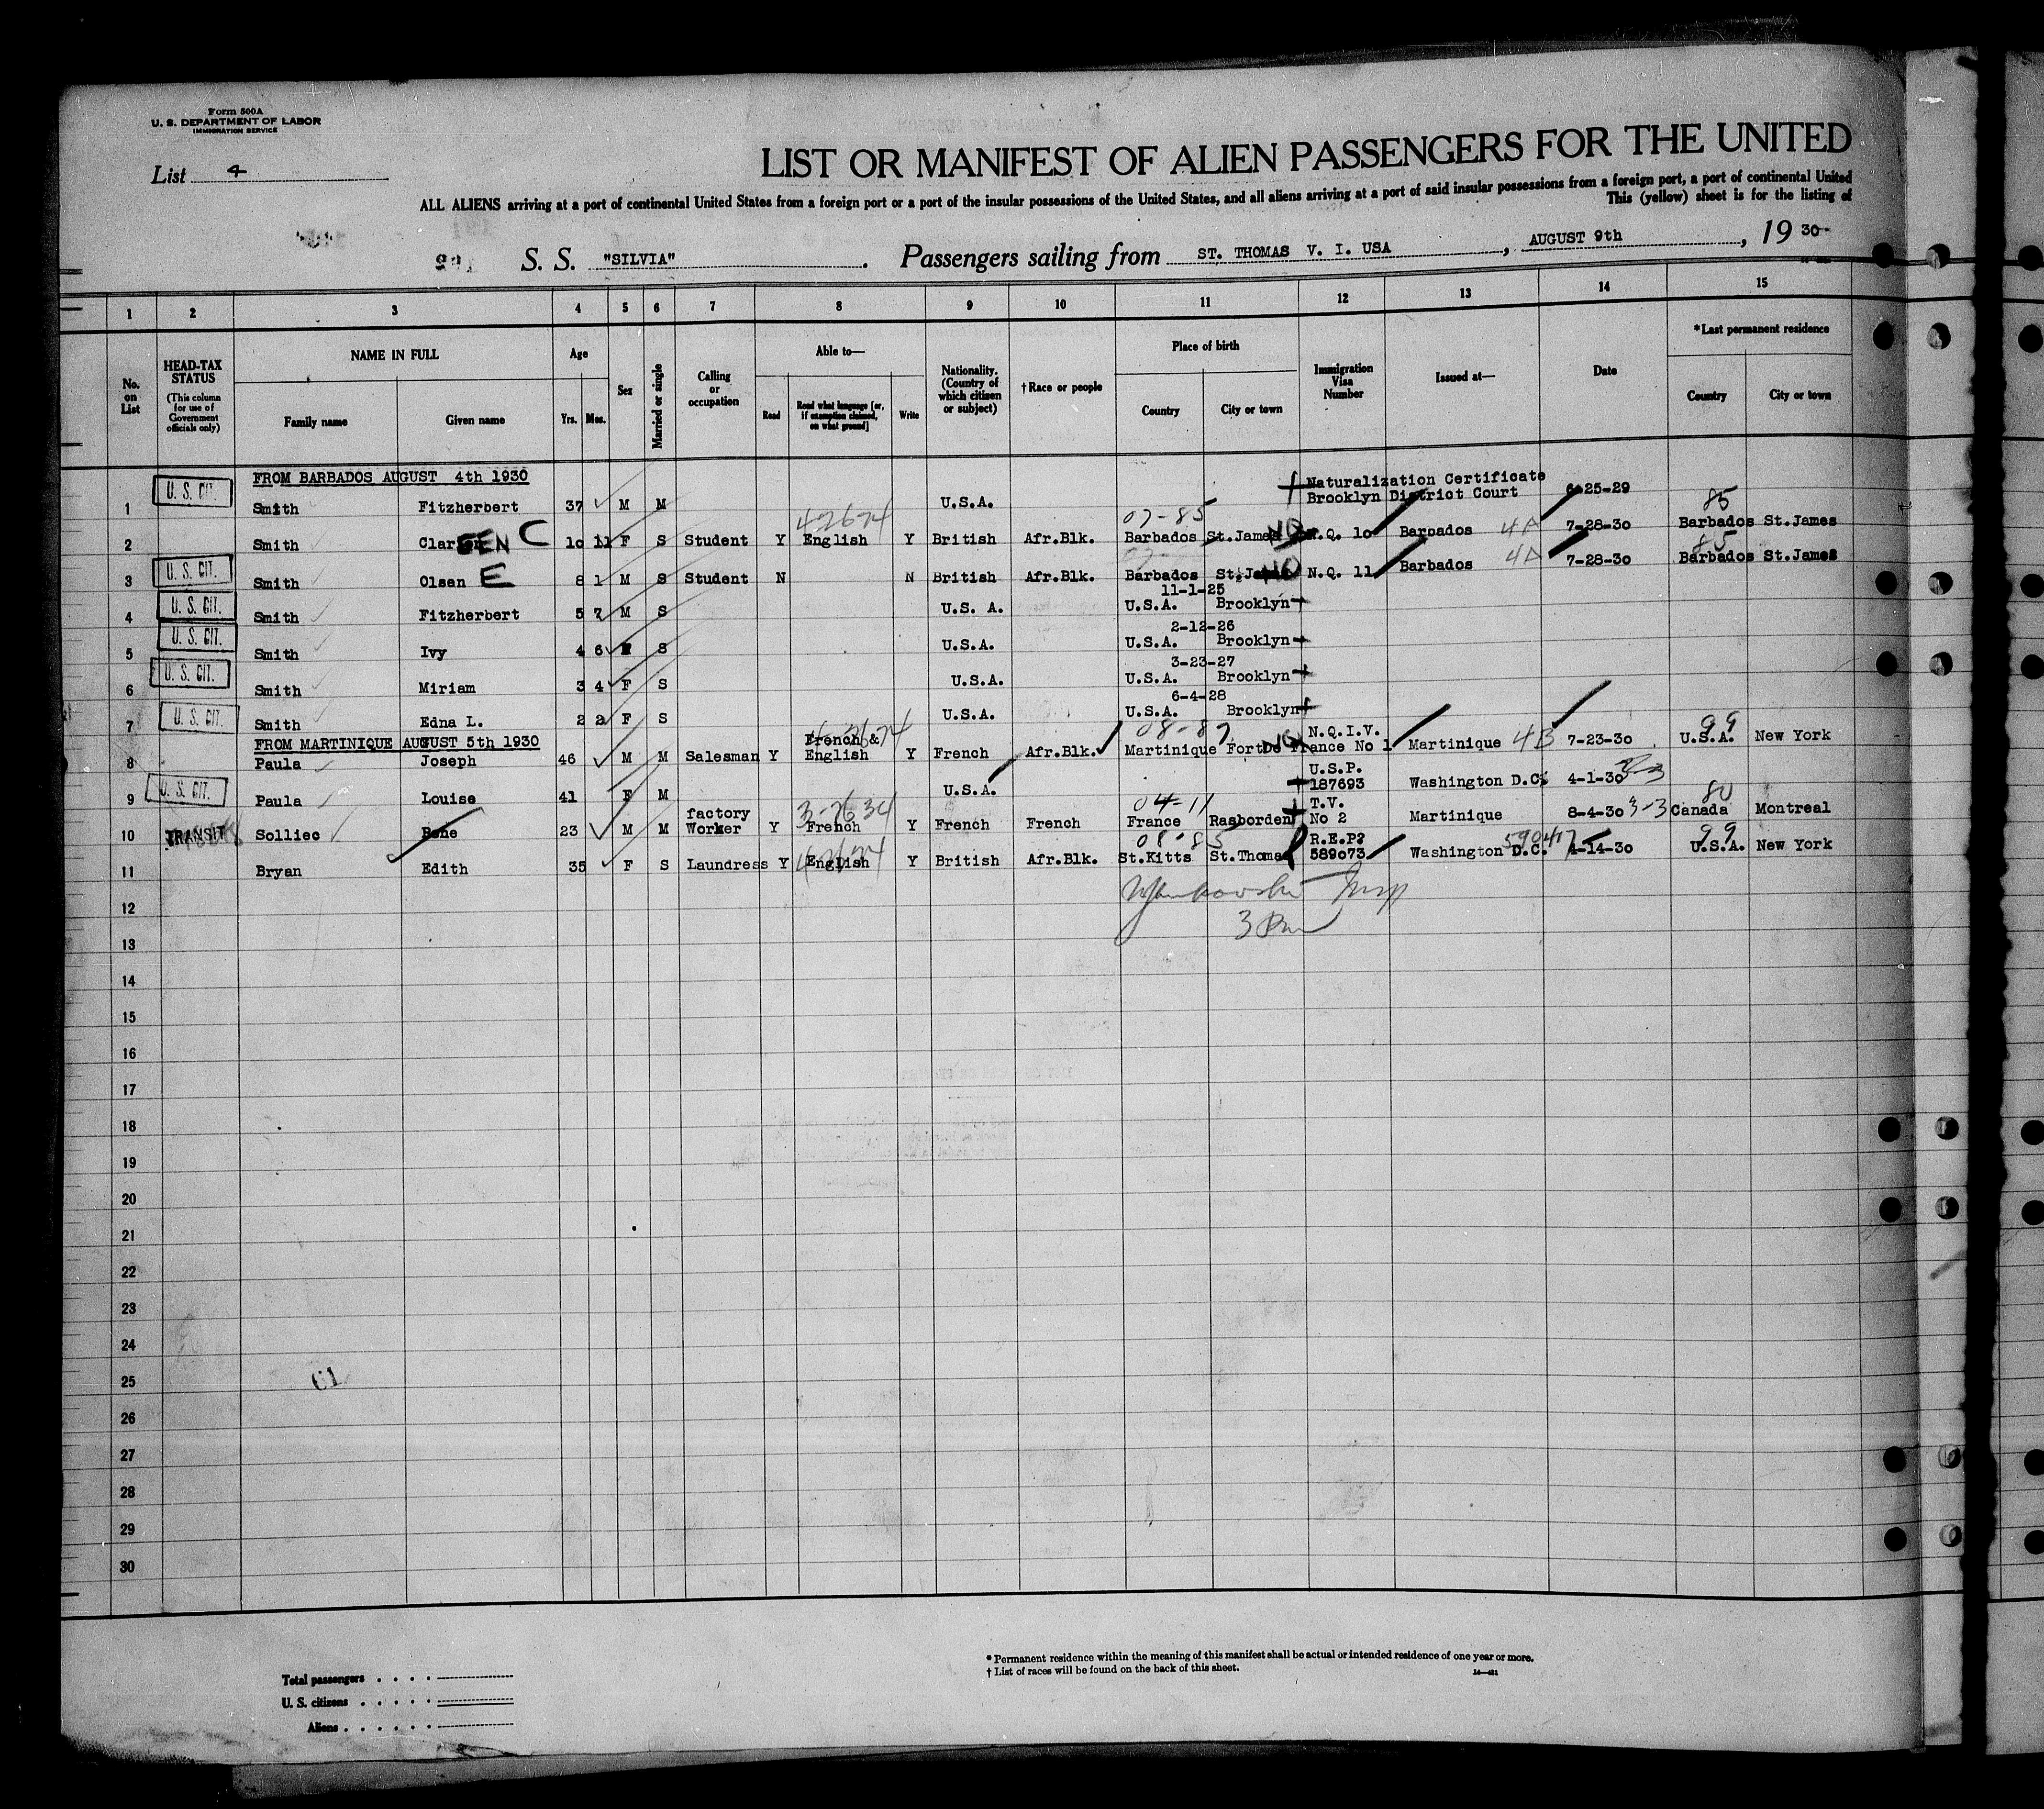 Form 500A
U. S. DEPARTMENT OF LABOR
IMMIGRATION SERVICE
List 4
LIST OR MANIFEST OF ALIEN PASSENGERS FOR THE UNITED
ALL ALIENS arriving at a port of continental United States from a foreign port or a port of the insular possessions of the United States, and all aliens arriving at a port of said insular possessions from a foreign port, a port of continental United
This (yellow) sheet is for the listing of
S. S. "SILVIA" . Passengers sailing from ST. THOMAS V. I. USA , AUGUST 9th , 19 30
1 2 3 4 5 6 7 8 9 10 11 12 13 14 15
No. on List
HEAD-TAX STATUS
(This column for use of Government officials only)
NAME IN FULL
Family name Given name
Age
Yrs. Mos.
Sex
Married or single
Calling or occupation
Able to—
Read Read what language [or, if exemption claimed, on what ground] Write
Nationality. (Country of which citizen or subject)
†Race or people
Place of birth
Country City or town
Immigration Visa Number
Issued at—
Date
*Last permanent residence
Country City or town
FROM BARBADOS AUGUST 4th 1930
1 U. S. CIT. Smith Fitzherbert 37 M M U.S.A. Naturalization Certificate Brooklyn District Court 6-25-29
42674 07-85 85
2 Smith 10 11 F S Student Y English Y British Afr.Blk. Barbados St.James N.Q. 10 Barbados 4A 7-28-30 Barbados St.James
85
3 U. S. CIT. Smith Olsen E 8 1 M S Student N N British Afr.Blk. Barbados N.Q. 11 Barbados 4A 7-28-30 Barbados St.James
11-1-25
4 U. S. CIT. Smith Fitzherbert 5 7 M S U.S. A. U.S.A. Brooklyn
2-12-26
5 U. S. CIT. Smith Ivy 4 6 S U.S.A. U.S.A. Brooklyn
3-23-27
6 U. S. CIT. Smith Miriam 3 4 F S U.S.A. U.S.A. Brooklyn
6-4-28
7 U. S. CIT. Smith Edna L. 2 2 F S U.S.A. U.S.A. Brooklyn
FROM MARTINIQUE AUGUST 5th 1930
08-87 99
8 Paula Joseph 46 M M Salesman Y French & English Y French Afr.Blk. Martinique Fort De France N.Q.I.V. No 1 Martinique 4B 7-23-30 U.S.A. New York
9 U. S. CIT. Paula Louise 41 F M U.S.A. U.S.P. 187693 Washington D.C. 4-1-30 3-3
04-11 80
10 TRANSIT Solliec Rene 23 M M factory Worker Y French Y French French France Rasborden T.V. No 2 Martinique 8-4-30 3-3 Canada Montreal
08-85 99
11 Bryan Edith 35 F S Laundress Y English Y British Afr.Blk. St.Kitts St.Thomas R.E.P. 589073 Washington D.C. 4-14-30 U.S.A. New York
12
13
14
15
16
17
18
19
20
21
22
23
24
25
26
27
28
29
30
Total passengers . . . .
U. S. citizens . . . . .
Aliens . . . . . .
* Permanent residence within the meaning of this manifest shall be actual or intended residence of one year or more.
† List of races will be found on the back of this sheet.
14—421